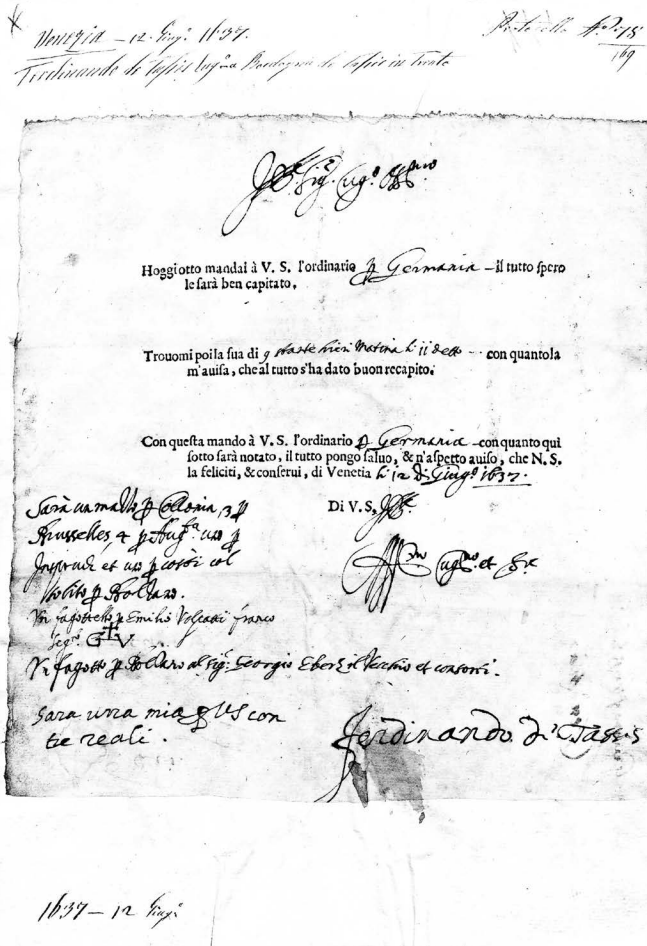 Venezia – 12. Giug.º 1637.
Ferdinando de Tassis Bordogna de Tassis in Trento
169
Ill.re Sig.r Cug.º Oss.mo
Hoggi otto mandai à V. S. l'ordinario p Germania – il tutto spero
le sarà ben capitato,
Trouomi poi la sua di hieri Matina li 11 detto – con quanto la
m'auisa, che al tutto s'ha dato buon recapito.
Con questa mando à V. S. l'ordinario p Germania – con quanto qui
sotto sarà notato, il tutto pongo saluo, & n'aspetto auiso, che N. S.
la feliciti, & conserui, di Venetia li 12 di Giug.º 1637.
Di V. S. Ill.re
Sarà un mazzo p Collonia, 3 p
Brusselles 4 p Aug.ta uno p
et uno p col
solito p Bolzano.
Un fagottello p Emilio franco
seg.to G V
Un fagotto p Bolzano al Sig.r Georgio Ebert il Vecchio et consorti.
Aff.mo Cug.no et Ser.
Sara una mia p VS con
tre reali.
Ferdinando di Tassis
1637 – 12 Giug.º